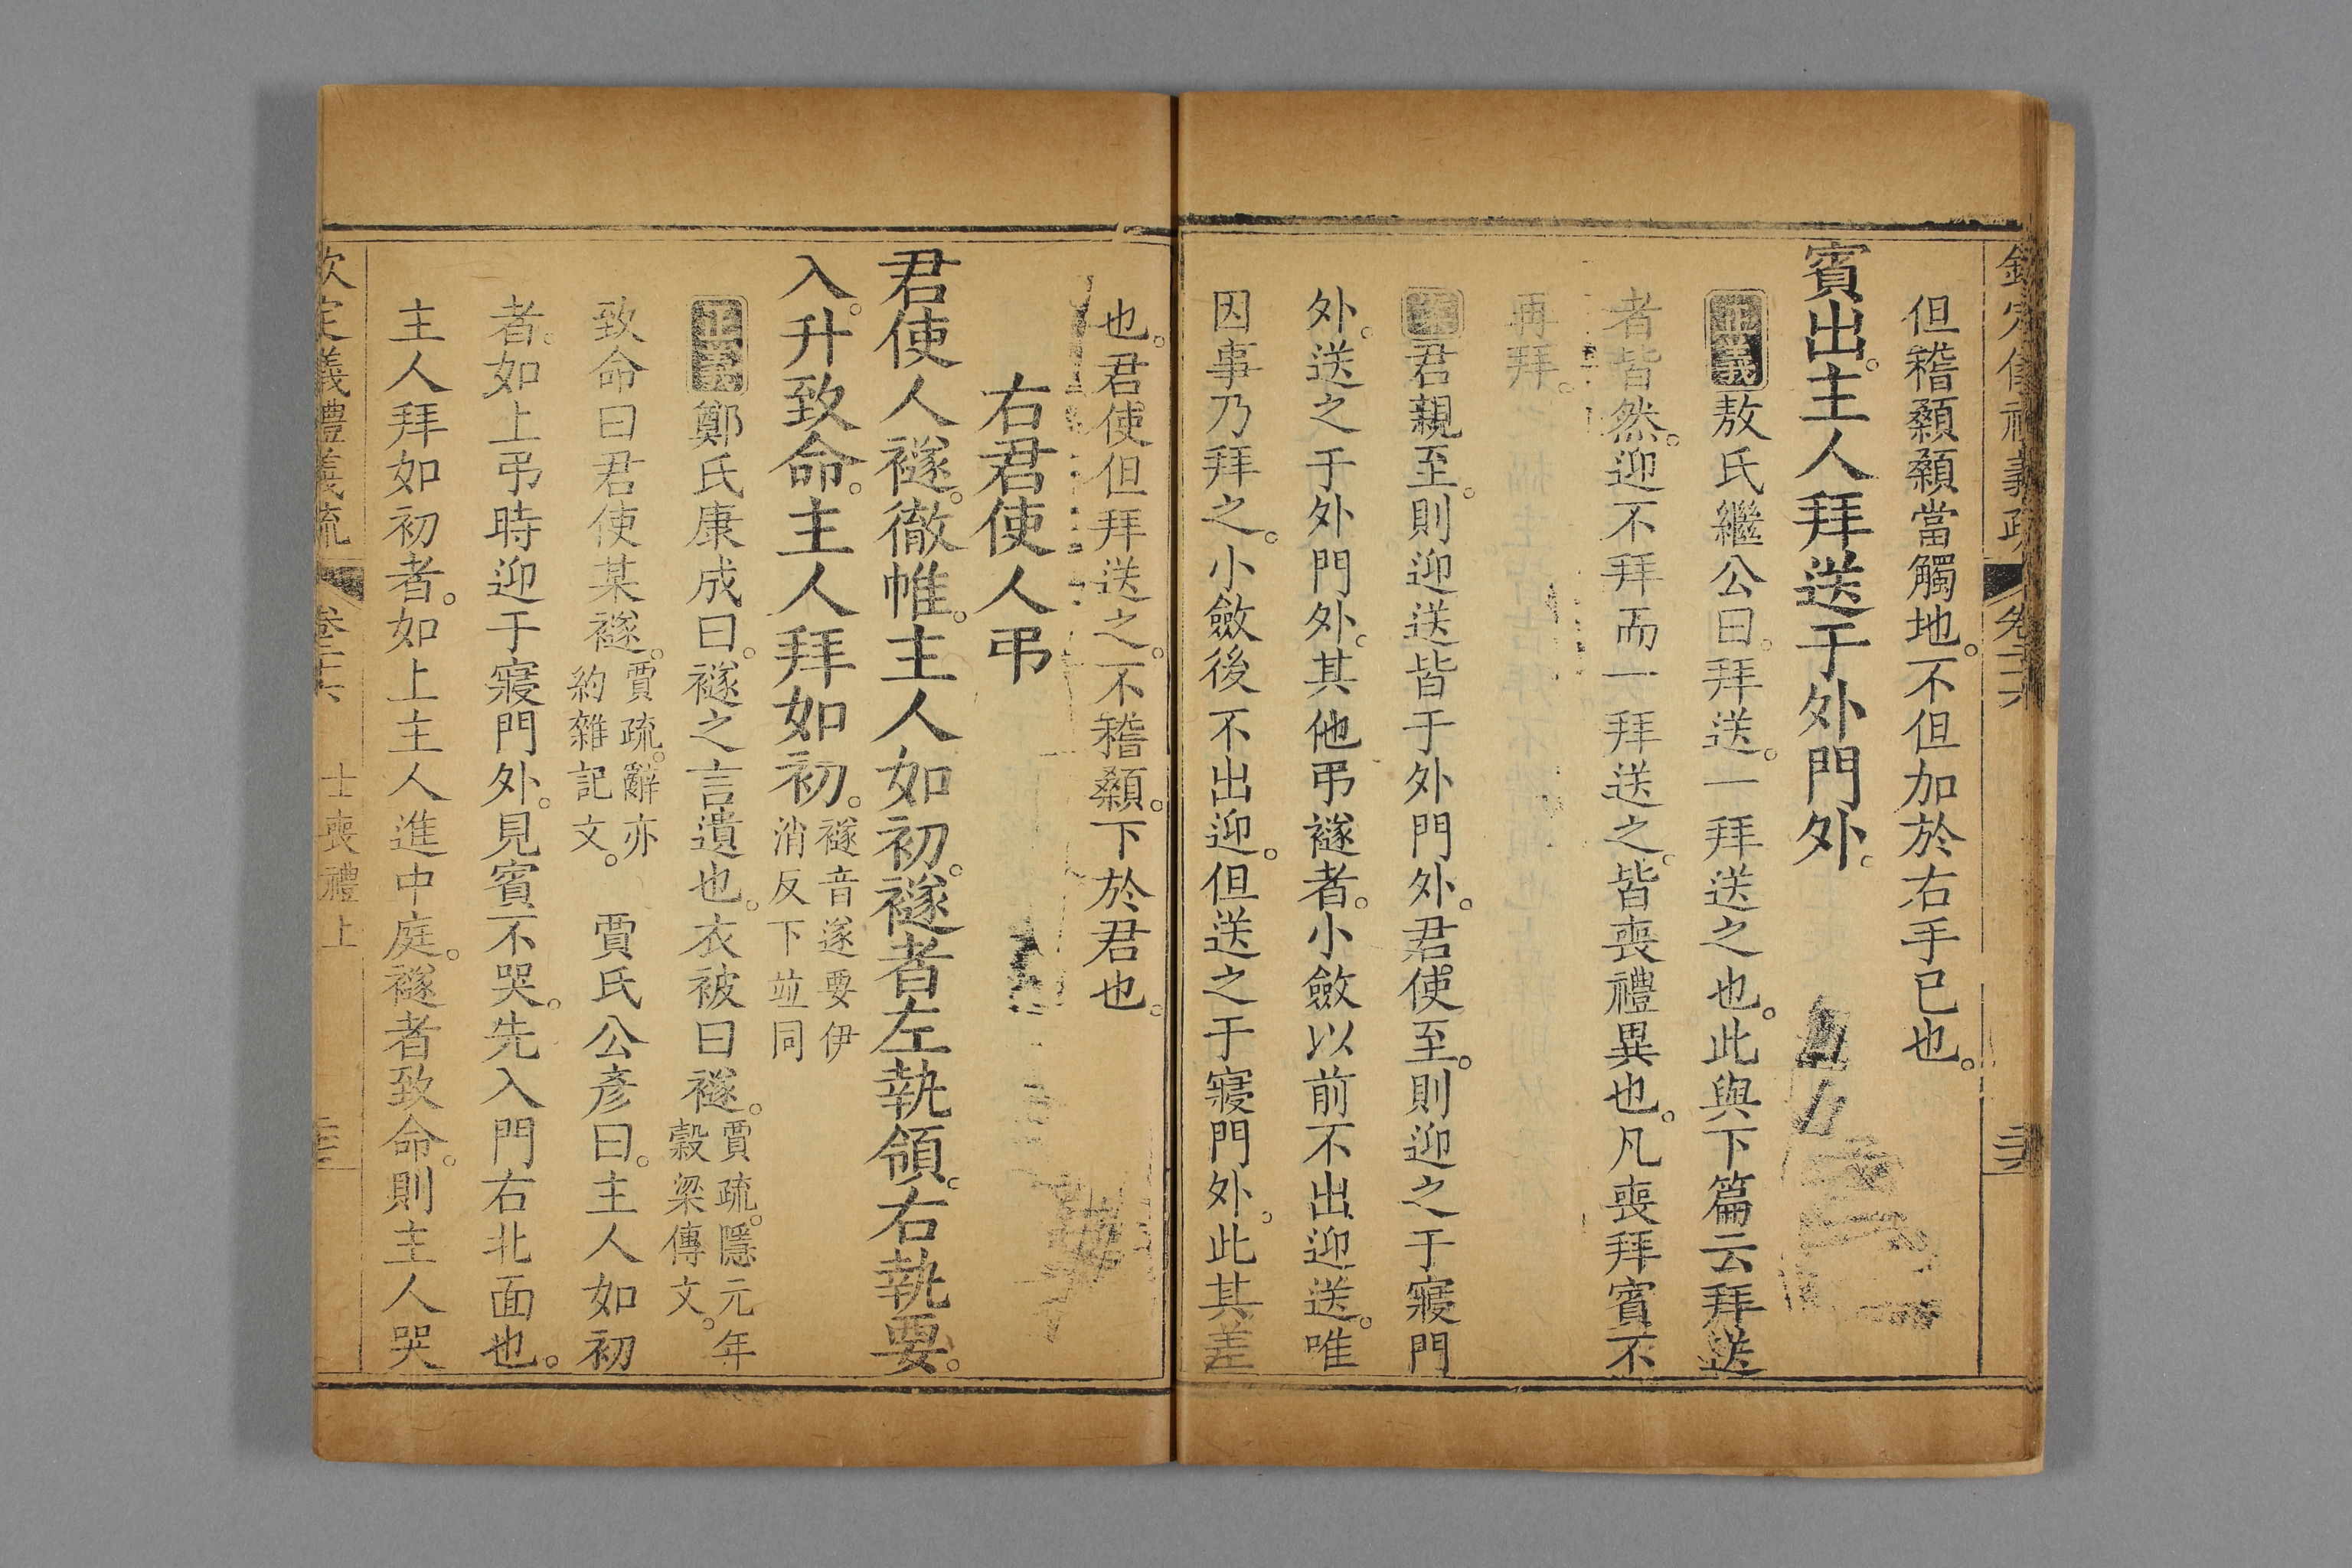 欽定儀禮義疏 卷二十六
但稽顙顙當觸地。不但加於右手已也。
賓出。主人拜送于外門外。
正義敖氏繼公曰。拜送。一拜送之也。此與下篇云拜送
者皆然。迎不拜而一拜送之。皆喪禮異也。凡喪拜賓不
再拜。
案君親至。則迎送皆于外門外。君使至。則迎之于寢門
外。送之于外門外。其他弔襚者。小斂以前不出迎送。唯
因事乃拜之。小斂後不出迎。但送之于寢門外。此其差
也。君使但拜送之。不稽顙。下於君也。
右君使人弔
君使人襚。徹帷。主人如初。襚者左執領。右執要。
入。升致命。主人拜如初。襚音遂要伊
消反下竝同
正義鄭氏康成曰。襚之言遺也。衣被曰襚。賈疏。隱元年
穀梁傳文。
致命曰君使某襚。賈疏。辭亦
約雜記文。 賈氏公彥曰。主人如初
者。如上弔時迎于寢門外。見賓不哭。先入門右北面也。
主人拜如初者。如上主人進中庭。襚者致命。則主人哭
欽定儀禮義疏 卷二十六 士喪禮上